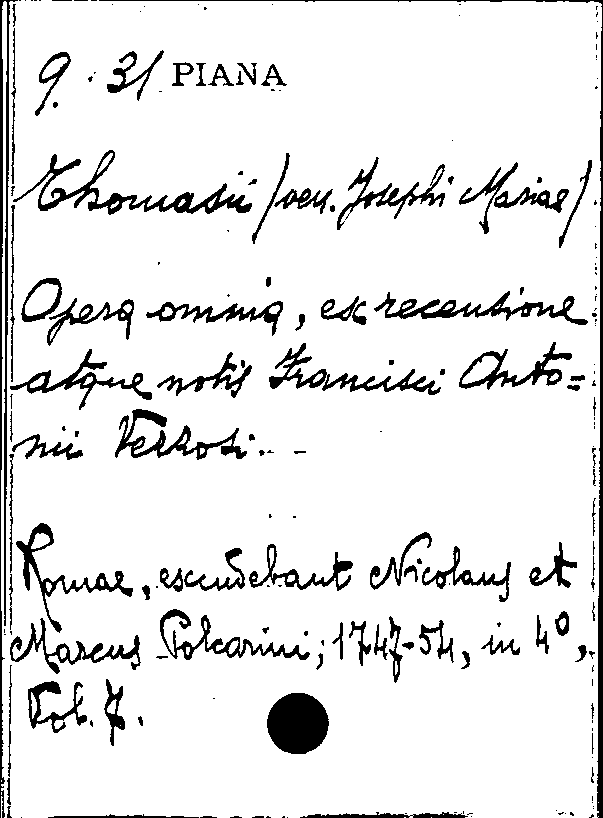 9. 31 PIANA
Thomasii (ven. Josephi Mariae)
Opera omnia, ex recensione
atque notis Francisci Anto=
nii Vezzosi. -
Romae, excudebant Nicolaus et
Marcus Palearini; 1747-54, in 4º,
Vol. 7.